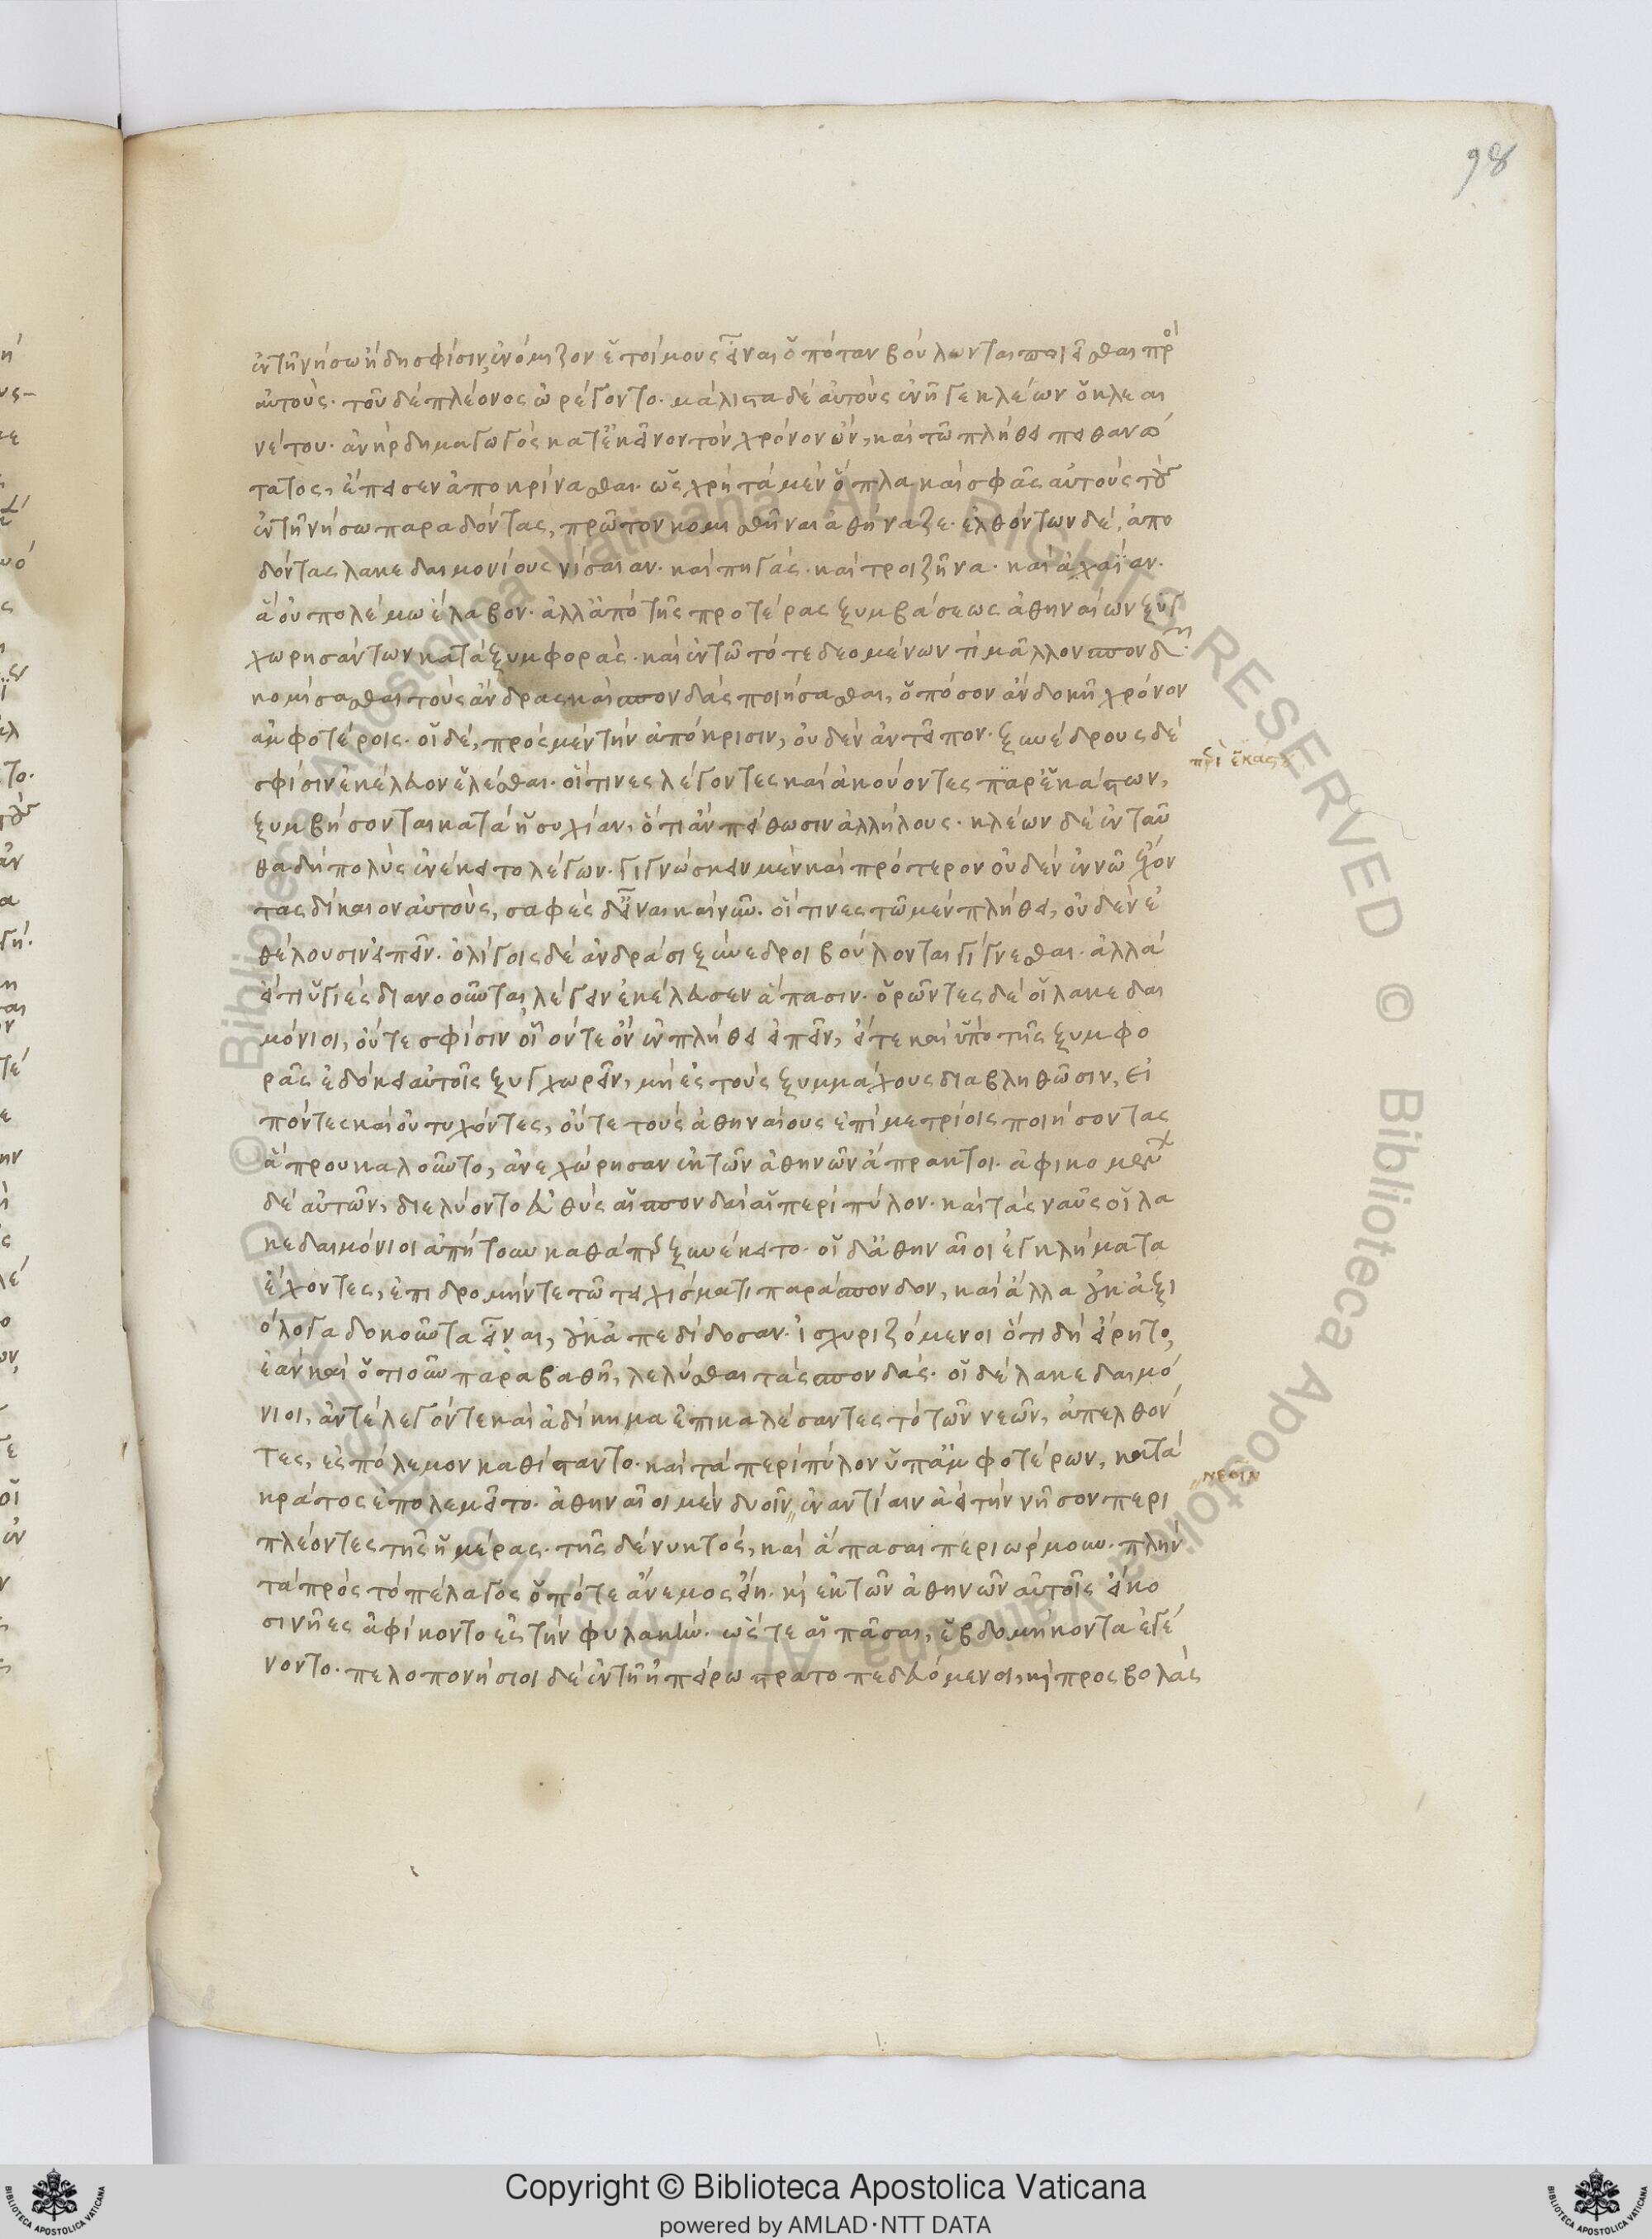 98
ἐν τῆ νήσω ἤδη σφίσιν, ἐνόμιζον ἑτοίμους εἶναι ὁπόταν βούλωνται ποιεῖσθαι πρὸ
αὐτούς· τοῦ δὲ πλέονος ὠρέγοντο· μάλιστα δὲ αὐτοὺς ἐνῆγε κλέων ὁ κλεαι
νέτου· ἀνὴρ δημαγωγὸς κατ' ἐκεῖνον τὸν χρόνον ὢν, καὶ τῶ πλήθει πιθανώ
τατος, ἔπεισεν ἀποκρίνασθαι· ὡς χρὴ τὰ μὲν ὅπλα καὶ σφᾶς αὐτοὺς τοὺς
ἐν τῆ νήσω παραδόντας, πρῶτον κομισθῆναι ἀθήναζε· ἐλθόντων δὲ, ἀπο
δόντας λακεδαιμονίους νίσαιαν· καὶ πηγάς· καὶ τροιζῆνα· καὶ ἀχαΐαν·
ἃ οὐ πολέμω ἔλαβον· ἀλλ' ἀπὸ τῆς προτέρας ξυμβάσεως ἀθηναίων ξυγ
χωρησάντων κατὰ ξυμφοράς· καὶ ἐν τῶ τότε δεομένων τι μᾶλλον σπονδῶν·
κομίσασθαι τοὺς ἄνδρας καὶ σπονδὰς ποιήσασθαι, ὁπόσον ἂν δοκῆ χρόνον
ἀμφοτέροις· οἱ δὲ, πρὸς μὲν τὴν ἀπόκρισιν, οὐδὲν ἀντεῖπον· ξυνέδρους δὲ
σφίσιν ἐκέλευον ἑλέσθαι· οἵτινες λέγοντες καὶ ἀκούοντες παρ' ἑκάστων,
περὶ ἑκάστου
ξυμβήσονται κατὰ ἡσυχίαν, ὅτι ἂν πείθωσιν ἀλλήλους· κλέων δὲ ἐνταῦ
θα δὴ πολὺς ἐνέκειτο λέγων· γιγνώσκειν μὲν καὶ πρότερον οὐδὲν ἐν νῶ ἔχον
τας δίκαιον αὐτοὺς, σαφὲς δ' εἶναι καὶ νῦν· οἵτινες τῶ μὲν πλήθει, οὐδὲν ἐ
θέλουσιν εἰπεῖν· ὀλίγοις δὲ ἀνδράσι ξύνεδροι βούλονται γίγνεσθαι· ἀλλὰ
εἴ τι ὑγιὲς διανοοῦνται, λέγειν ἐκέλευσεν ἅπασιν· ὁρῶντες δὲ οἱ λακεδαι
μόνιοι, οὔτε σφίσιν οἷόν τε ὂν ἐν πλήθει εἰπεῖν, εἴ τε καὶ ὑπὸ τῆς ξυμφο
ρᾶς ἐδόκει αὐτοῖς ξυγχωρεῖν, μὴ ἐς τοὺς ξυμμάχους διαβληθῶσιν, εἰ
πόντες καὶ οὐ τυχόντες, οὔτε τοὺς ἀθηναίους ἐπὶ μετρίοις ποιήσοντας
ἃ προυκαλοῦντο, ἀνεχώρησαν ἐκ τῶν ἀθηνῶν ἄπρακτοι· ἀφικομένων
δὲ αὐτῶν, διελύοντο εὐθὺς αἱ σπονδαὶ αἱ περὶ πύλον· καὶ τὰς ναῦς οἱ λα
κεδαιμόνιοι ἀπήτουν καθάπερ ξυνέκειτο· οἱ δ' ἀθηναῖοι ἐγκλήματα
ἔχοντες, ἐπιδρομήν τε τῶ τειχίσματι παράσπονδον, καὶ ἄλλα οὐκ ἀξι
όλογα δοκοῦντα εἶναι, οὐκ ἀπεδίδοσαν· ἰσχυριζόμενοι ὅτι δὴ εἴρητο,
ἐὰν καὶ ὁτιοῦν παραβαθῆ, λελύσθαι τὰς σπονδάς· οἱ δὲ λακεδαιμό
νιοι, ἀντέλεγόν τε καὶ ἀδίκημα ἐπικαλέσαντες τὸ τῶν νεῶν, ἀπελθόν
τες, ἐς πόλεμον καθίσταντο· καὶ τὰ περὶ πύλον ὑπ' ἀμφοτέρων, κατὰ
κράτος ἐπολεμεῖτο· ἀθηναῖοι μὲν δυοῖν ἐναντίαιν ἀεὶ τὴν νῆσον περι
νεοῖν
πλέοντες τῆς ἡμέρας· τῆς δὲ νυκτὸς, καὶ ἅπασαι περιώρμουν· πλὴν
τὰ πρὸς τὸ πέλαγος ὁπότε ἄνεμος εἴη· καὶ ἐκ τῶν ἀθηνῶν αὐτοῖς εἴκο
σι νῆες ἀφίκοντο ἐς τὴν φυλακήν· ὥστε αἱ πᾶσαι, ἑβδομήκοντα ἐγέ
νοντο· πελοπονήσιοι δὲ ἐν τῆ ἠπείρω στρατοπεδευόμενοι, καὶ προσβολὰς
Copyright © Biblioteca Apostolica Vaticana
powered by AMLAD·NTT DATA